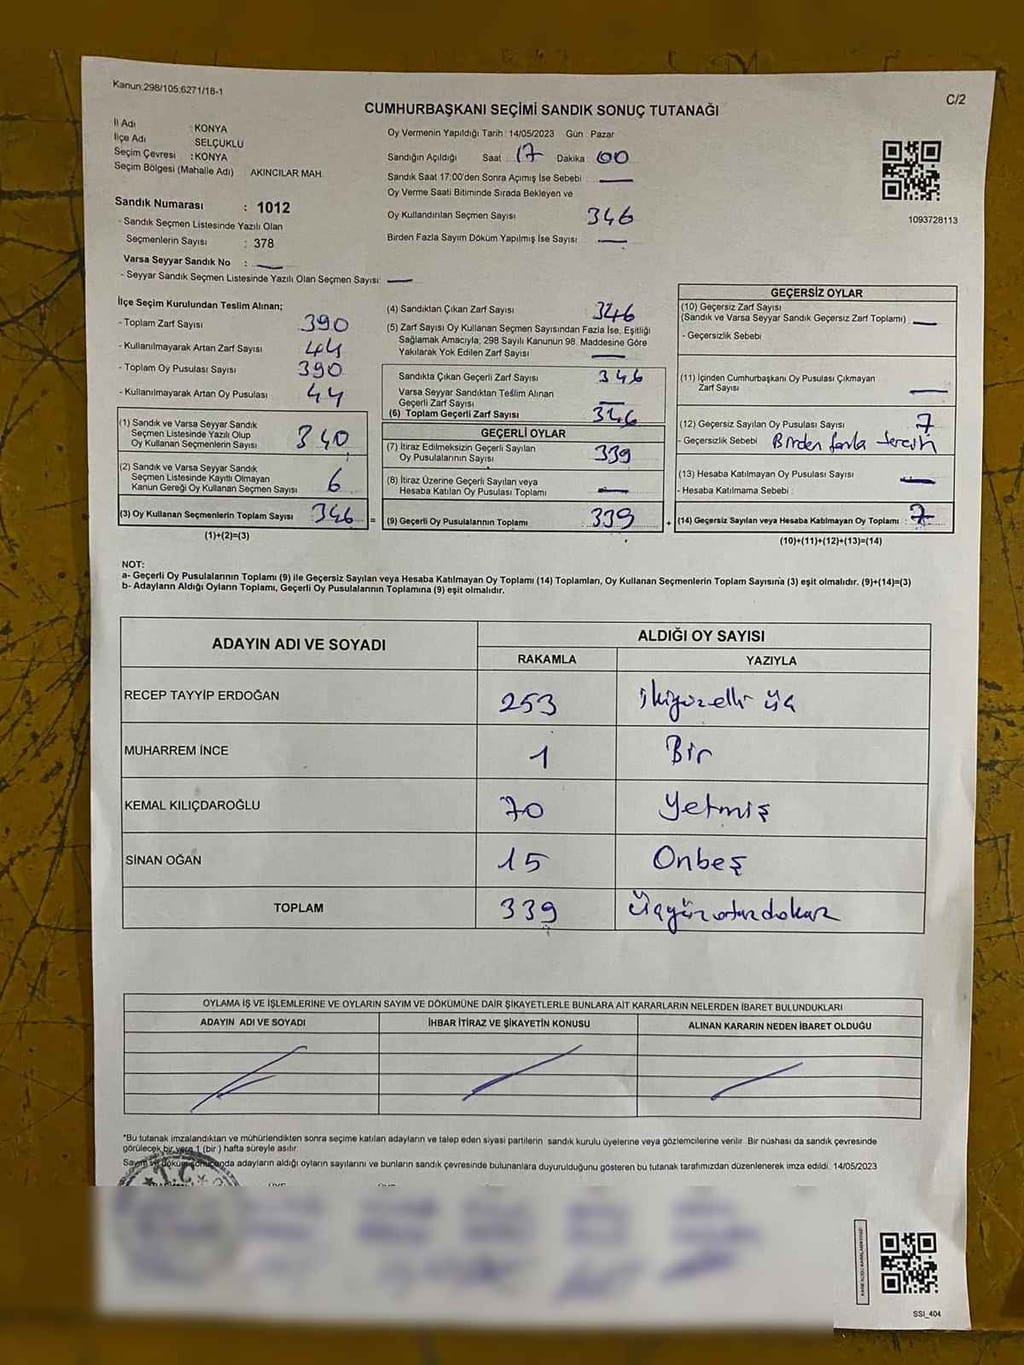 Kanun:298/105.6271/18-1
C/2
CUMHURBAŞKANI SEÇİMİ SANDIK SONUÇ TUTANAĞI
İl Adı : KONYA
İlçe Adı SELÇUKLU
Seçim Çevresi : KONYA
Seçim Bölgesi (Mahalle Adı) AKINCILAR MAH.
Sandık Numarası : 1012
- Sandık Seçmen Listesinde Yazılı Olan
Seçmenlerin Sayısı : 378
Varsa Seyyar Sandık No : —
- Seyyar Sandık Seçmen Listesinde Yazılı Olan Seçmen Sayısı: —
Oy Vermenin Yapıldığı Tarih : 14/05/2023 Gün : Pazar
Sandığın Açıldığı Saat 17 Dakika 00
Sandık Saat 17:00'den Sonra Açımış İse Sebebi —
Oy Verme Saati Bitiminde Sırada Bekleyen ve
Oy Kullandırılan Seçmen Sayısı 346
Birden Fazla Sayım Döküm Yapılmış İse Sayısı —
1093728113
İlçe Seçim Kurulundan Teslim Alınan;
- Toplam Zarf Sayısı 390
- Kullanılmayarak Artan Zarf Sayısı 44
- Toplam Oy Pusulası Sayısı 390
- Kullanılmayarak Artan Oy Pusulası 44
(1) Sandık ve Varsa Seyyar Sandık
Seçmen Listesinde Yazılı Olup
Oy Kullanan Seçmenlerin Sayısı 340
(2) Sandık ve Varsa Seyyar Sandık
Seçmen Listesinde Kayıtlı Olmayan
Kanun Gereği Oy Kullanan Seçmen Sayısı 6
(3) Oy Kullanan Seçmenlerin Toplam Sayısı 346 =
(1)+(2)=(3)
(4) Sandıktan Çıkan Zarf Sayısı 346
(5) Zarf Sayısı Oy Kullanan Seçmen Sayısından Fazla İse, Eşitliği
Sağlamak Amacıyla, 298 Sayılı Kanunun 98. Maddesine Göre
Yakılarak Yok Edilen Zarf Sayısı —
Sandıkta Çıkan Geçerli Zarf Sayısı 346
Varsa Seyyar Sandıktan Teslim Alınan
Geçerli Zarf Sayısı —
(6) Toplam Geçerli Zarf Sayısı 346
GEÇERLİ OYLAR
(7) İtiraz Edilmeksizin Geçerli Sayılan
Oy Pusulalarının Sayısı 339
(8) İtiraz Üzerine Geçerli Sayılan veya
Hesaba Katılan Oy Pusulası Toplamı —
(9) Geçerli Oy Pusulalarının Toplamı 339 +
GEÇERSİZ OYLAR
(10) Geçersiz Zarf Sayısı
(Sandık ve Varsa Seyyar Sandık Geçersiz Zarf Toplamı) —
- Geçersizlik Sebebi
(11) İçinden Cumhurbaşkanı Oy Pusulası Çıkmayan
Zarf Sayısı —
(12) Geçersiz Sayılan Oy Pusulası Sayısı 7
- Geçersizlik Sebebi Birden fazla tercih
(13) Hesaba Katılmayan Oy Pusulası Sayısı —
- Hesaba Katılmama Sebebi :
(14) Geçersiz Sayılan veya Hesaba Katılmayan Oy Toplamı : 7
(10)+(11)+(12)+(13)=(14)
NOT:
a- Geçerli Oy Pusulalarının Toplamı (9) ile Geçersiz Sayılan veya Hesaba Katılmayan Oy Toplamı (14) Toplamları, Oy Kullanan Seçmenlerin Toplam Sayısına (3) eşit olmalıdır. (9)+(14)=(3)
b- Adayların Aldığı Oyların Toplamı, Geçerli Oy Pusulalarının Toplamına (9) eşit olmalıdır.
ADAYIN ADI VE SOYADI ALDIĞI OY SAYISI
RAKAMLA YAZIYLA
RECEP TAYYİP ERDOĞAN 253 ikiyüzelli üç
MUHARREM İNCE 1 Bir
KEMAL KILIÇDAROĞLU 70 Yetmiş
SİNAN OĞAN 15 Onbeş
TOPLAM 339 Üçyüzotuzdokuz
OYLAMA İŞ VE İŞLEMLERİNE VE OYLARIN SAYIM VE DÖKÜMÜNE DAİR ŞİKAYETLERLE BUNLARA AİT KARARLARIN NELERDEN İBARET BULUNDUKLARI
ADAYIN ADI VE SOYADI İHBAR İTİRAZ VE ŞİKAYETİN KONUSU ALINAN KARARIN NEDEN İBARET OLDUĞU
*Bu tutanak imzalandıktan ve mühürlendikten sonra seçime katılan adayların ve talep eden siyasi partilerin sandık kurulu üyelerine veya gözlemcilerine verilir. Bir nüshası da sandık çevresinde
görülecek bir yere 1 (bir) hafta süreyle asılır.
Sayım ve döküm sonucunda adayların aldığı oyların sayılarını ve bunların sandık çevresinde bulunanlara duyurulduğunu gösteren bu tutanak tarafımızdan düzenlenerek imza edildi. 14/05/2023
T.C.
SSI_404